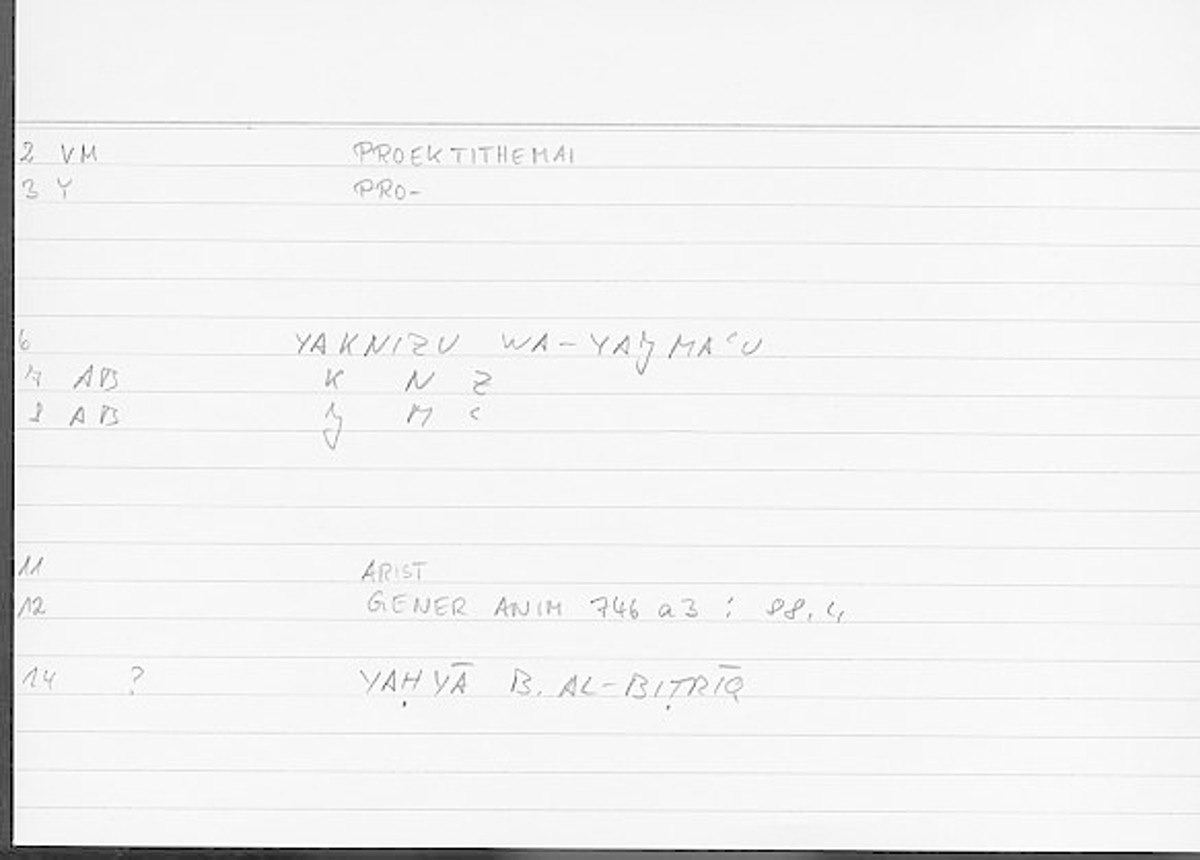 2 VM PROEKTITHEMAI
3 Y PRO-
6 YAKNIZU WA-YAŊMAʿU
7 AB K N Z
8 AB Ŋ M ʿ
11 ARIST
12 GENER ANIM 746 a 3 : 88,4
14 ? YAḤYĀ B. AL-BIṬRĪQ